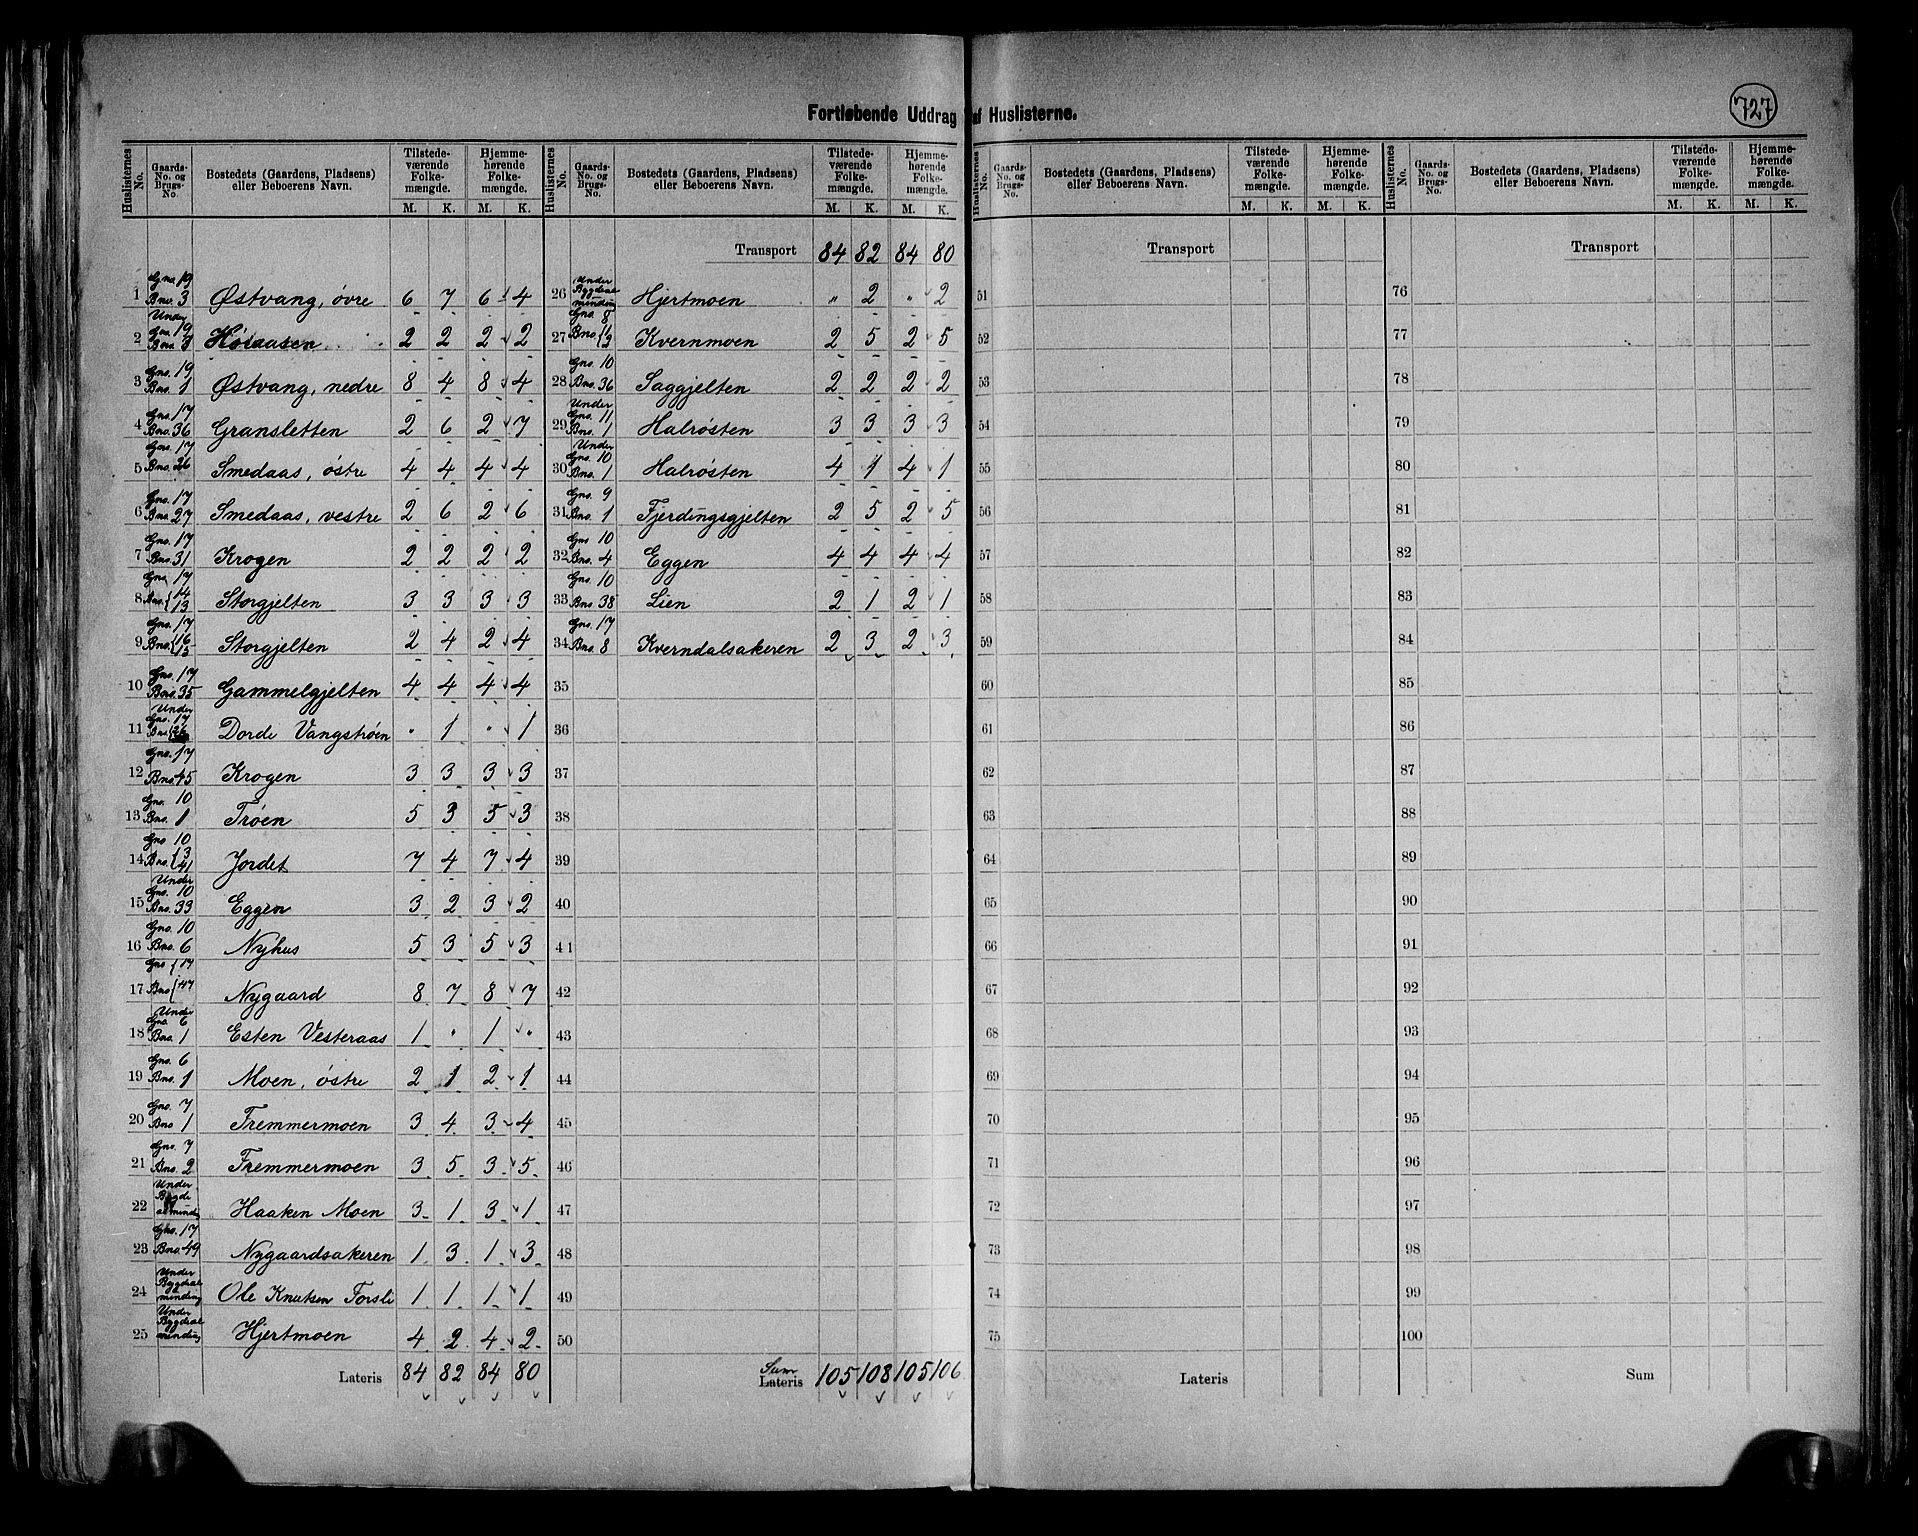 727
Fortløbende Uddrag af Huslisterne.
Huslisternes No. | Gaards-No. og Brugs-No. | Bostedets (Gaardens, Pladsens) eller Beboerens Navn. | Tilstedeværende Folkemængde. M. K. | Hjemmehørende Folkemængde. M. K.
1 Gno. 19 Bno. 3 Østvang, øvre 6 7 6 4
2 Under Gno. 19 Bno. 3 2 2 2 2
3 Gno. 19 Bno. 1 Østvang, nedre 8 4 8 4
4 Gno. 17 Bno. 36 Gransletten 2 6 2 7
5 Gno. 17 Bno. 26 Smedaas, østre 4 4 4 4
6 Gno. 17 Bno. 27 Smedaas, vestre 2 6 2 6
7 Gno. 17 Bno. 31 Krogen 2 2 2 2
8 Gno. 17 Bno. 14 13 Storgjelten 3 3 3 3
9 Gno. 17 Bno. 16 15 Storgjelten 2 4 2 4
10 Gno. 17 Bno. 35 Gammelgjelten 4 4 4 4
11 Under Gno. 17 Bno. Dorde Vangstrøen " 1 " 1
12 Gno. 17 Bno. 45 Krogen 3 3 3 3
13 Gno. 10 Bno. 1 Trøen 5 3 5 3
14 Gno 10 Bno. 3 41 Jordet 7 4 7 4
15 Under Gno. 10 Bno. 33 Eggen 3 2 3 2
16 Gno. 10 Bno. 6 Nyhus 5 3 5 3
17 Gno 17 Bno 47 Nygaard 8 7 8 7
18 Under Gno. 6 Bno. 1 Esten Vesteraas 1 " 1 "
19 Gno. 6 Bno. 1 Moen, østre 2 1 2 1
20 Gno. 7 Bno 1 Fremmermoen 3 4 3 4
21 Gno. 7 Bno. 2 Fremmermoen 3 5 3 5
22 Under Bygde Haaken Moen 3 1 3 1
23 Gno. 17 Bno. 49 Nygaardsakeren 1 3 1 3
24 Under Bygdealminding Ole Knutsen Forsli 1 1 1 1
25 Under Bygdealminding Hjertmoen 4 2 4 2
Lateris 84 82 84 80
Huslisternes No. | Gaards-No. og Brugs-No. | Bostedets (Gaardens, Pladsens) eller Beboerens Navn. | Tilstedeværende Folkemængde. M. K. | Hjemmehørende Folkemængde. M. K.
Transport 84 82 84 80
26 Under Bygdealminding Hjertmoen " 2 " 2
27 Gno. 8 Bno Kvernmoen 2 5 2 5
28 Gno. 10 Bno. 36 Saggjelten 2 2 2 2
29 Under Gno. 11 Bno. 1 Halrøsten 3 3 3 3
30 Under Gno. 10 Bno. 1 Halrøsten 4 1 4 1
31 Gno. 9 Bno. 1 Fjerdingsgjelten 2 5 2 5
32 Gno 10 Bno. 4 Eggen 4 4 4 4
33 Gno. 10 Bno. 38 Lien 2 1 2 1
34 Gno. 17 Bno. 8 Kverndalsakeren 2 3 2 3
35
36
37
38
39
40
41
42
43
44
45
46
47
48
49
50
Sum
Lateris 105 108 105 106
Huslisternes No. | Gaards-No. og Brugs-No. | Bostedets (Gaardens, Pladsens) eller Beboerens Navn. | Tilstedeværende Folkemængde. M. K. | Hjemmehørende Folkemængde. M. K.
Transport
51
52
53
54
55
56
57
58
59
60
61
62
63
64
65
66
67
68
69
70
71
72
73
74
75
Lateris
Huslisternes No. | Gaards-No. og Brugs-No. | Bostedets (Gaardens, Pladsens) eller Beboerens Navn. | Tilstedeværende Folkemængde. M. K. | Hjemmehørende Folkemængde. M. K.
Transport
76
77
78
79
80
81
82
83
84
85
86
87
88
89
90
91
92
93
94
95
96
97
98
99
100
Sum